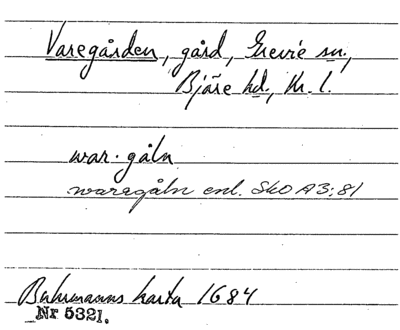 Varegården, gård, Grevie sn.,
Bjäre hd., Kr. l.
war·gåln
waregåln enl. SkO A3:81
Buhrmanns karta 1684
Nr 5321.